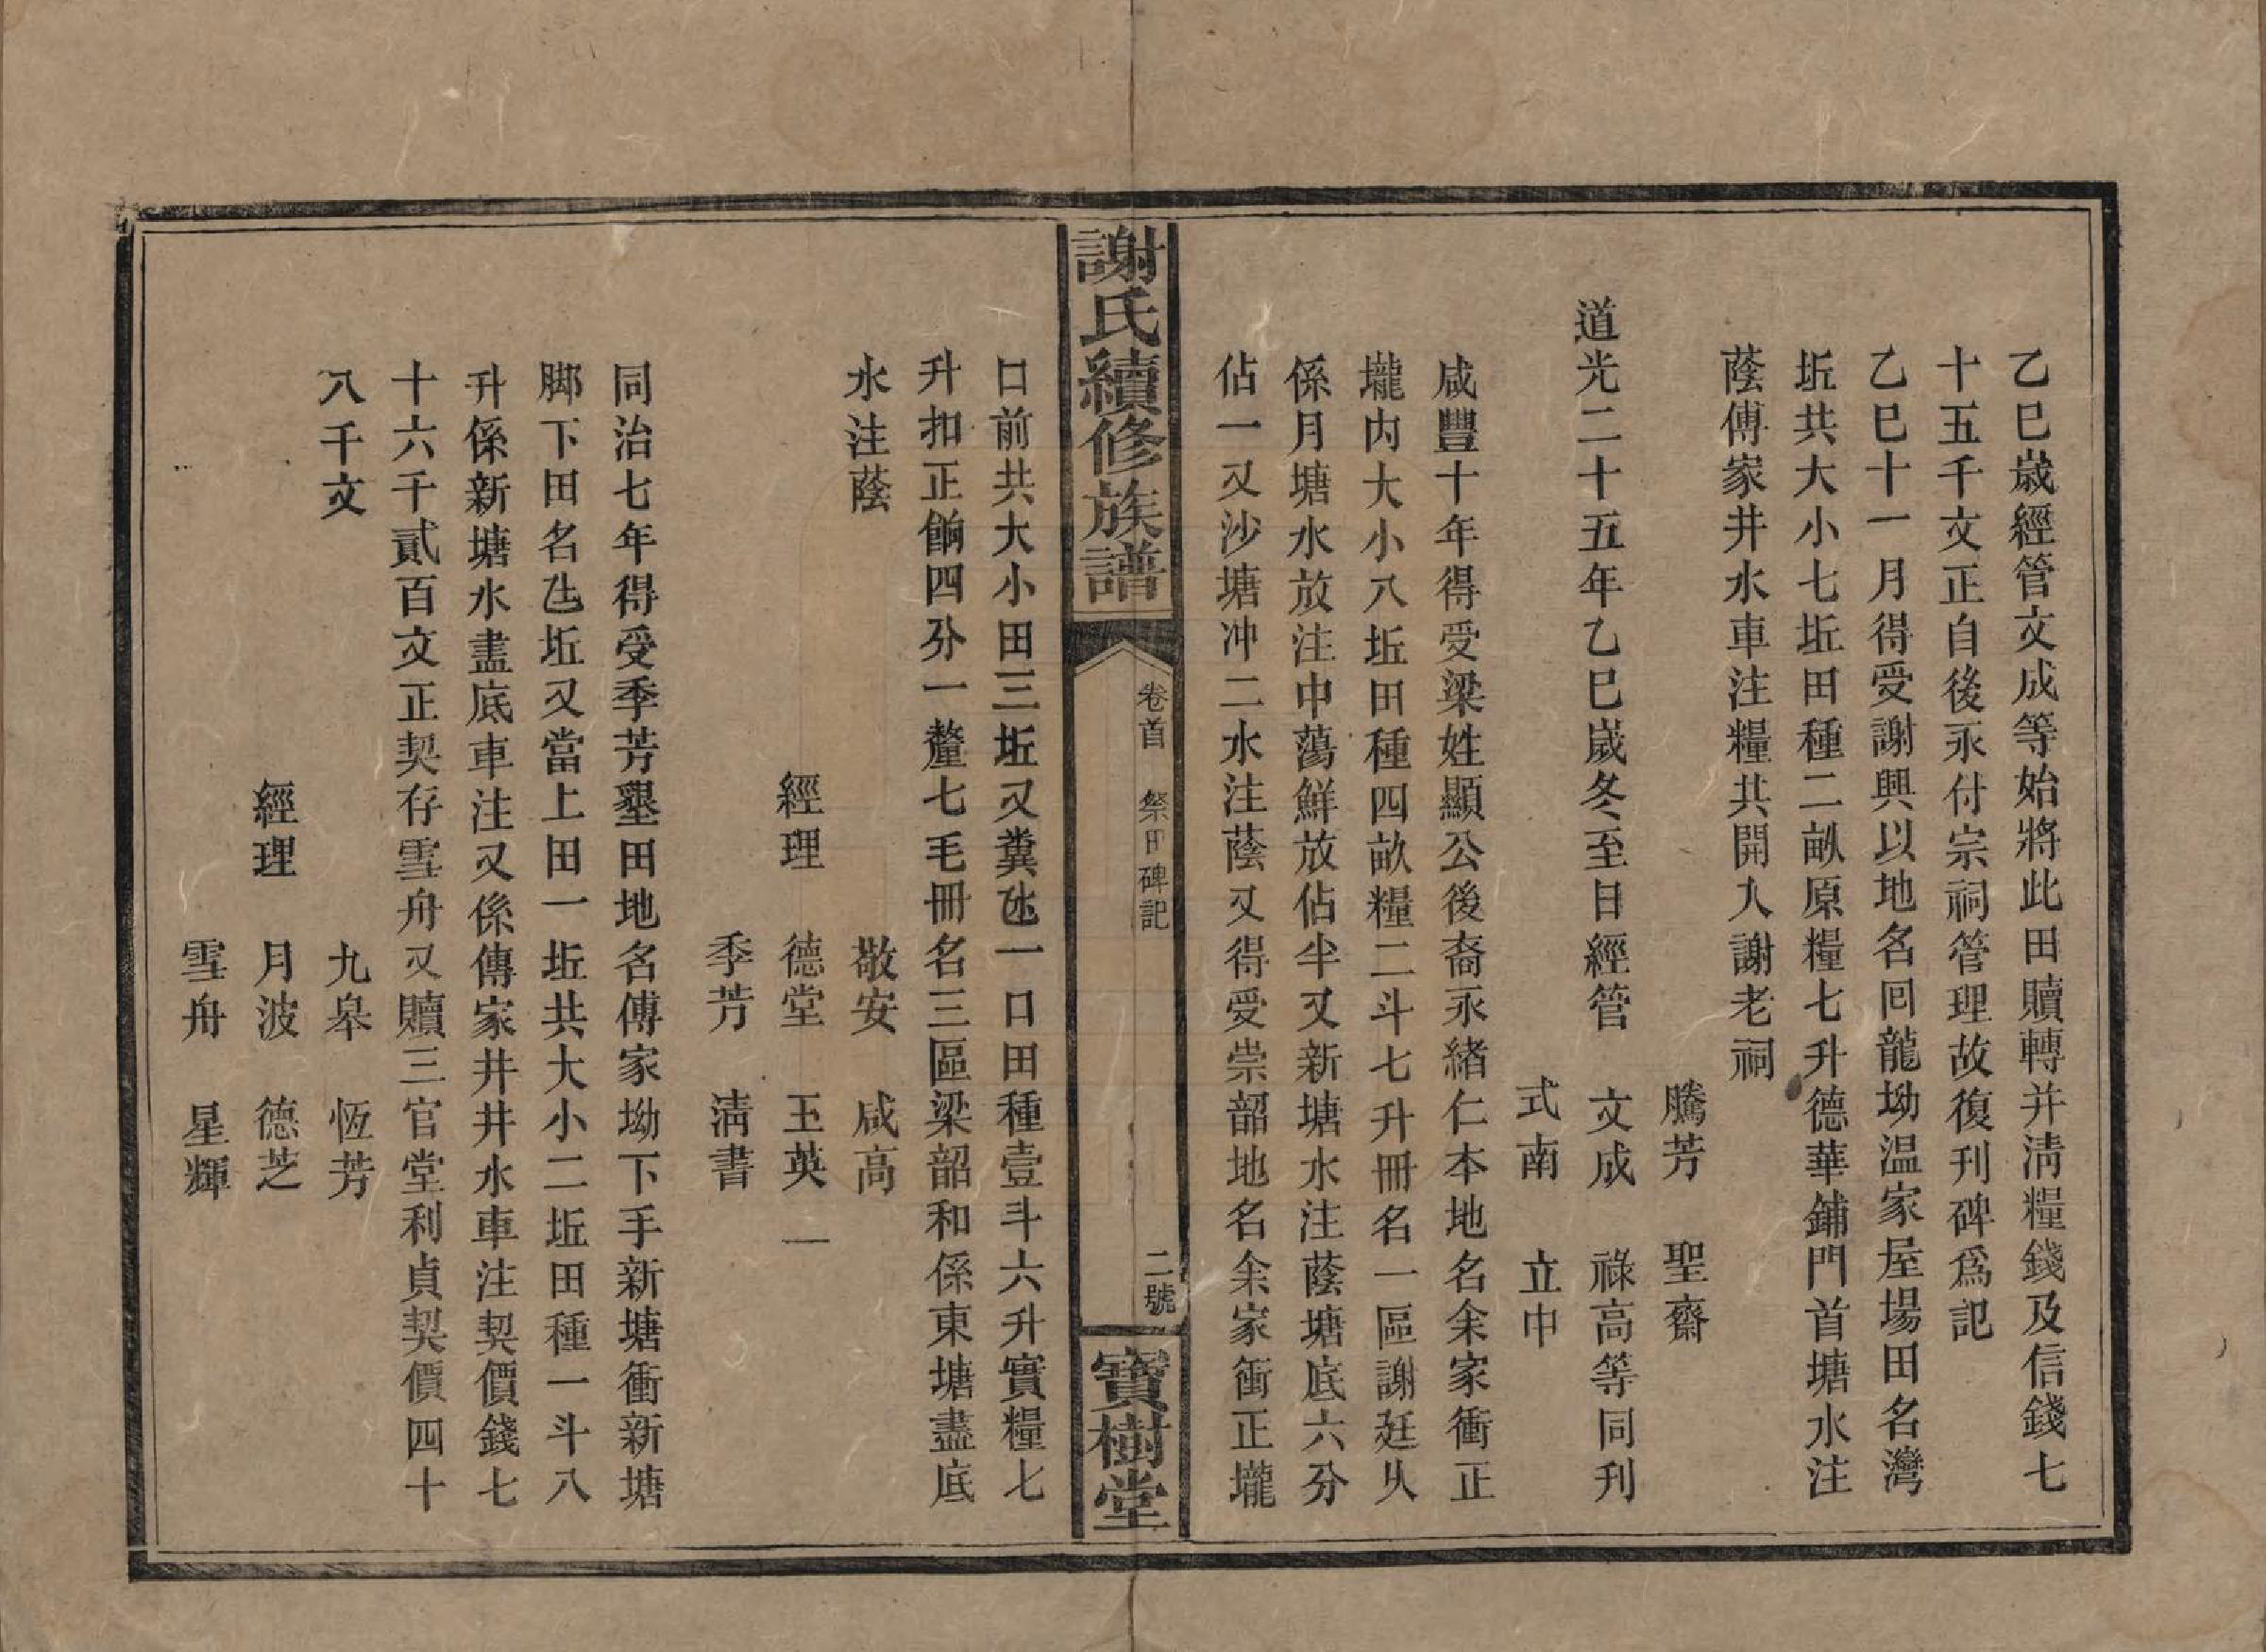 乙巳歲經管文成等始將此田贖轉并淸糧錢及信錢七
十五千文正自後永付宗祠管理故復刊碑爲記
乙巳十一月得受謝興以地名囘龍坳温家屋場田名灣
坵共大小七坵田種二畝原糧七升德華鋪門首塘水注
蔭傅家井水車注糧共開入謝老祠
騰芳 聖齋
道光二十五年乙巳歲冬至日經管 文成 祿高等同刋
式南 立中
咸豐十年得受梁姓顯公後裔永緒仁本地名余家衝正
壠內大小八坵田種四畝糧二斗七升冊名一區謝廷乆
係月塘水放注中蕩鮮放佔半又新塘水注蔭塘底六分
佔一又沙塘冲二水注蔭又得受崇韶地名余家衝正壠
謝氏續修族譜
卷首 祭田碑記
二號
寶樹堂
口前共大小田三坵又糞氹一口田種壹斗六升實糧七
升扣正餉四分一釐七毛冊名三區梁韶和係東塘盡底
水注蔭
敬安 咸高
經理 德堂 玉英一
季芳 淸書
同治七年得受季芳墾田地名傅家坳下手新塘衝新塘
脚下田名氹坵又當上田一坵共大小二坵田種一斗八
升係新塘水盡底車注又係傅家井井水車注契價錢七
十六千貳百文正契存雪舟又贖三官堂利貞契價四十
八千文
九皋 恆芳
經理 月波 德芝
雪舟 星輝